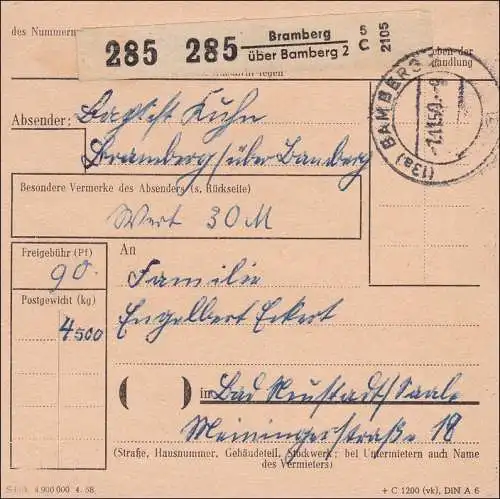 des Nummern
285 285 Bramberg
über Bamberg 2
5
C
2105
eben der
ndlung
Absender: Kuhn
Bramberg/über Bamberg
Besondere Vermerke des Absenders (s. Rückseite)
Wert 30 M
(13a) BAMBERG
-7.11.59.-9
Freigebühr (Pf)
90.
Postgewicht (kg)
4500
An
Familie
Engelbert Eckert
( ) in Bad Neustadt/Saale
Meiningerstraße 18
(Straße, Hausnummer, Gebäudeteil, Stockwerk; bei Untermietern auch Name
des Vermieters)
4 900 000 4. 58.
+ C 1200 (vk), DIN A 6